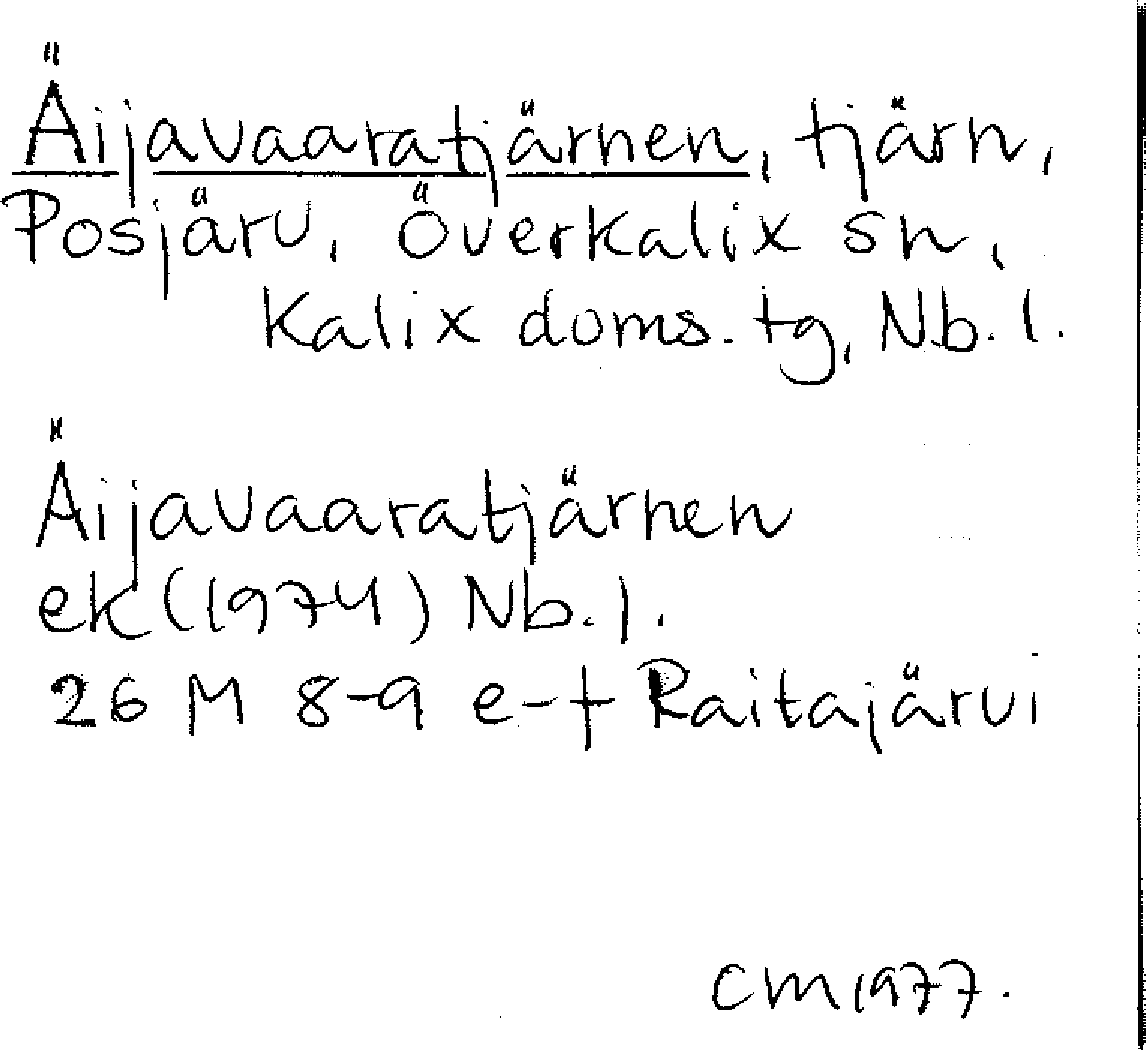 Äijavaaratjärnen, tjärn,
Posjärv, Överkalix sn,
Kalix doms. tg, Nb. l.
Äijavaaratjärnen
ek (1974) Nb. l.
26 M 8-9 e-f Raitajärvi
CM 1977.